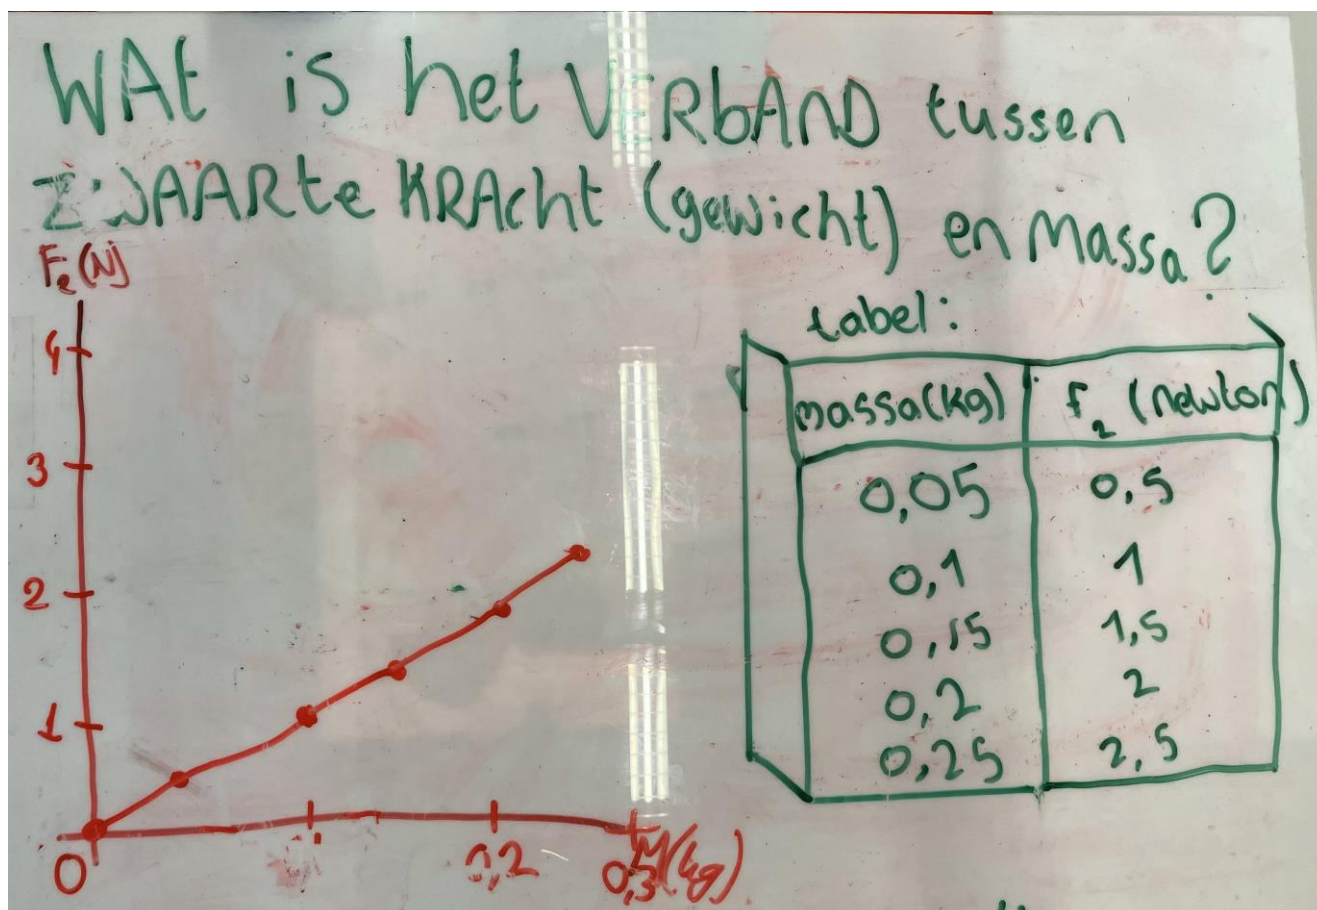 WAt is het VERbAND tussen
ZWAARte KRAcht (gewicht) en massa?
Fz (N)
4
3
2
1
0
0,2
0,3
M(kg)
tabel:
massa(kg) fz (newton)
0,05 0,5
0,1 1
0,15 1,5
0,2 2
0,25 2,5